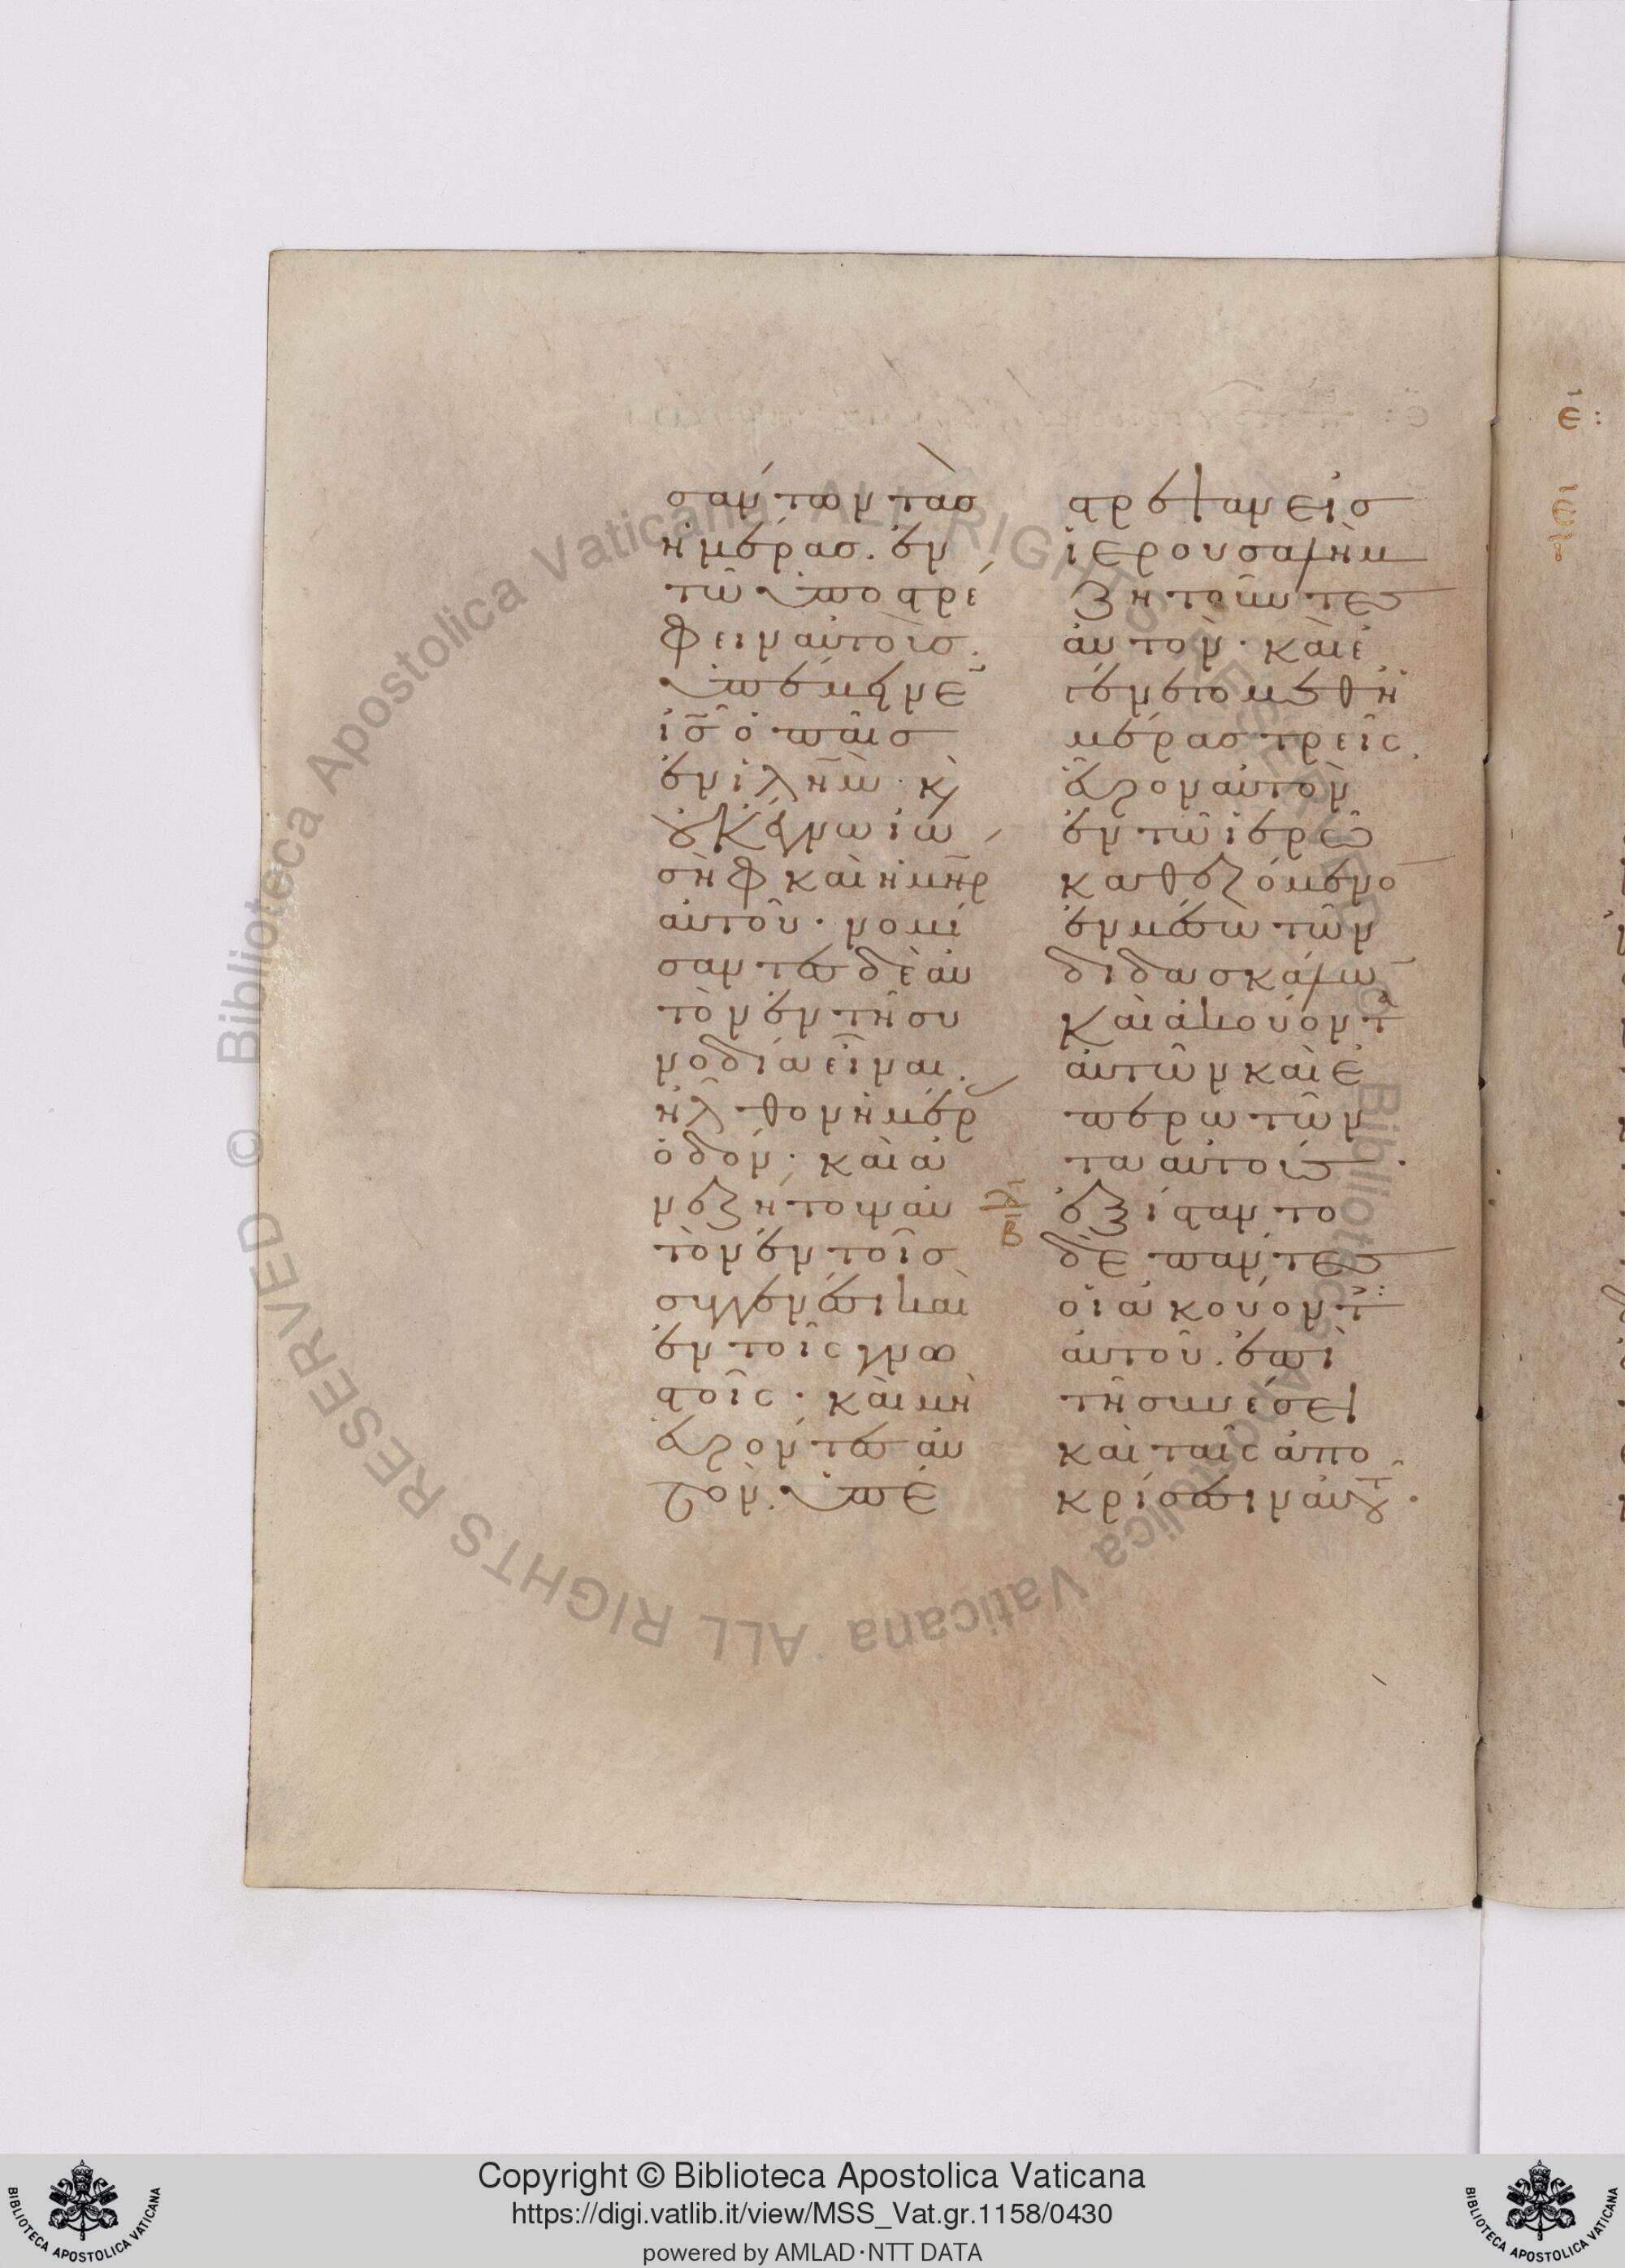 σάντων τὰς
ἡμέρας. ἐν
τῶ ὑποστρέ
φειν αὐτοὺς.
ὑπέμεινε
ἰς̄ ὁ παῖς
ἐν ἰλη̄μ· κ
οὐκ ἔγνω ἰω
σὴφ καὶ ἡ μη̄ρ
αὐτοῦ· νομί
σαντες δὲ αὐ
τὸν ἐν τῆ συ
νοδία εἶναι.
ἦλθον ἡμέρας
ὁδόν· καὶ ἀ
νεζήτουν αὐ
τὸν ἐν τοῖς
συγγενέσι καὶ
ἐν τοῖς γνω
στοῖς· καὶ μὴ
εὑρόντες αὐ
τὸν· ὑπέ
στρεψαν εἰς
ἱερουσαλὴμ
ζητοῦντες
αὐτόν· καὶ ἐ
γένετο μεθ ἡ
μέρας τρεῖς.
εὗρον αὐτὸν
ἐν τῶ ἱερῶ
καθεζόμενο
ἐν μέσω τῶν
διδασκάλω
καὶ ἀκούοντ
αὐτῶν καὶ ἐ
περωτῶν
τα αὐτούς·
ἐξίσταντο
δὲ πάντες
οἱ ἀκούοντ
αὐτοῦ. ἐπὶ
τῆ συνέσει
καὶ ταῖς ἀπο
κρίσεσιν αὐτοῦ·
Copyright © Biblioteca Apostolica Vaticana
https://digi.vatlib.it/view/MSS_Vat.gr.1158/0430
powered by AMLAD·NTT DATA
BIBLIOTECA APOSTOLICA VATICANA
BIBLIOTECA APOSTOLICA VATICANA
© Biblioteca Apostolica Vaticana ALL RIGHTS RESERVED
© Biblioteca Apostolica Vaticana ALL RIGHTS RESERVED